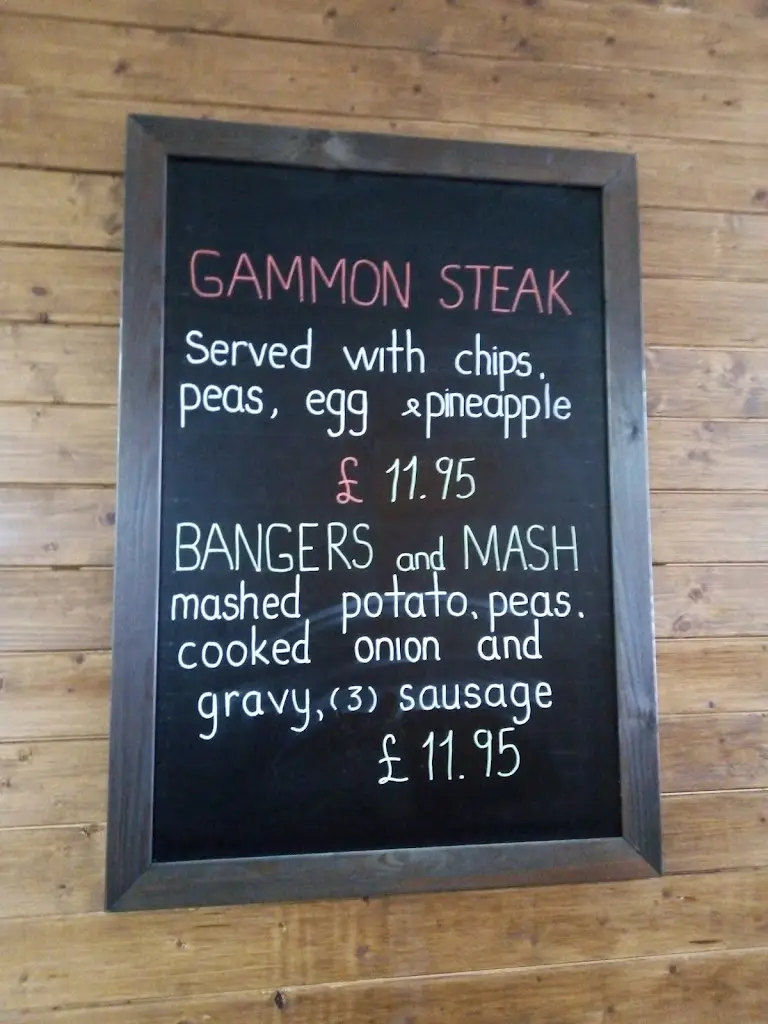 GAMMON STEAK
Served with chips.
peas, egg &pineapple
£ 11.95
BANGERS and MASH
mashed potato, peas.
cooked onion and
gravy,(3) sausage
£11.95